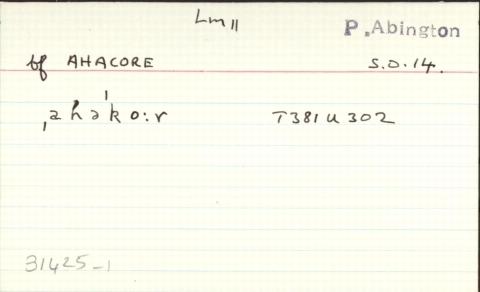 Lm 11
P. Abington
bf AHACORE S.D.14.
ˌəhəˈkoːr T381U302
31425-1